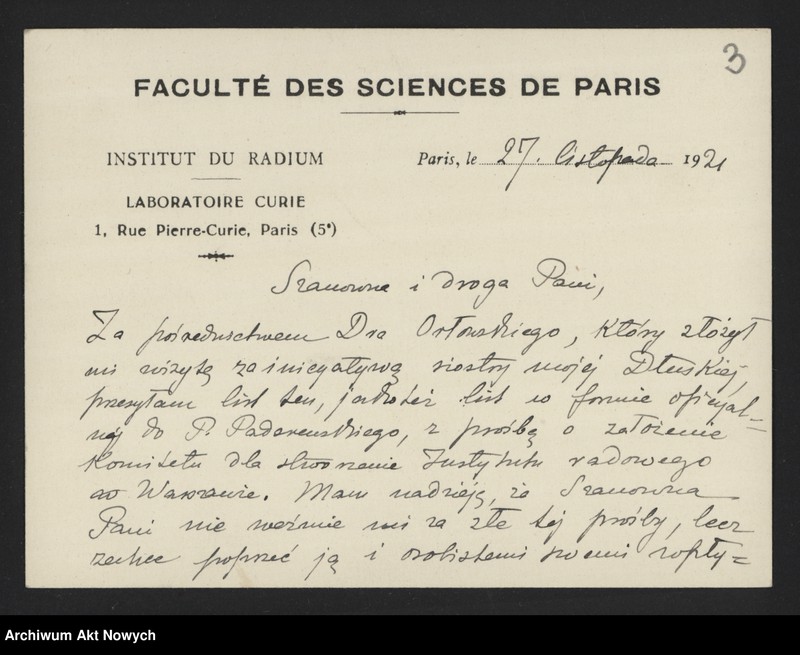 3
FACULTÉ DES SCIENCES DE PARIS
INSTITUT DU RADIUM
Paris, le 27. listopada 1921
LABORATOIRE CURIE
1, Rue Pierre-Curie, Paris (5e)
Szanowna i droga Pani,
Za pośrednictwem Dra Orłowskiego, który złożył
mi wizytę za inicyatywą siostry mojej Dłuskiej,
przesyłam list ten, jakoteż list w formie oficyal=
nej do P. Paderewskiego, z prośbą o założenie
Komitetu dla stworzenia Instytutu radowego
w Warszawie. Mam nadzieję, że Szanowna
Pani nie weźmie mi za złe tej prośby, lecz
zechce poprzeć ją i osobistemi swemi wpły=
Archiwum Akt Nowych